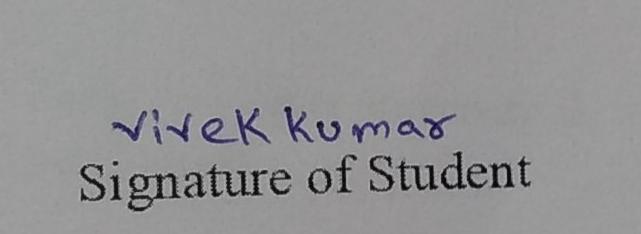 Vivek Kumar
Signature of Student